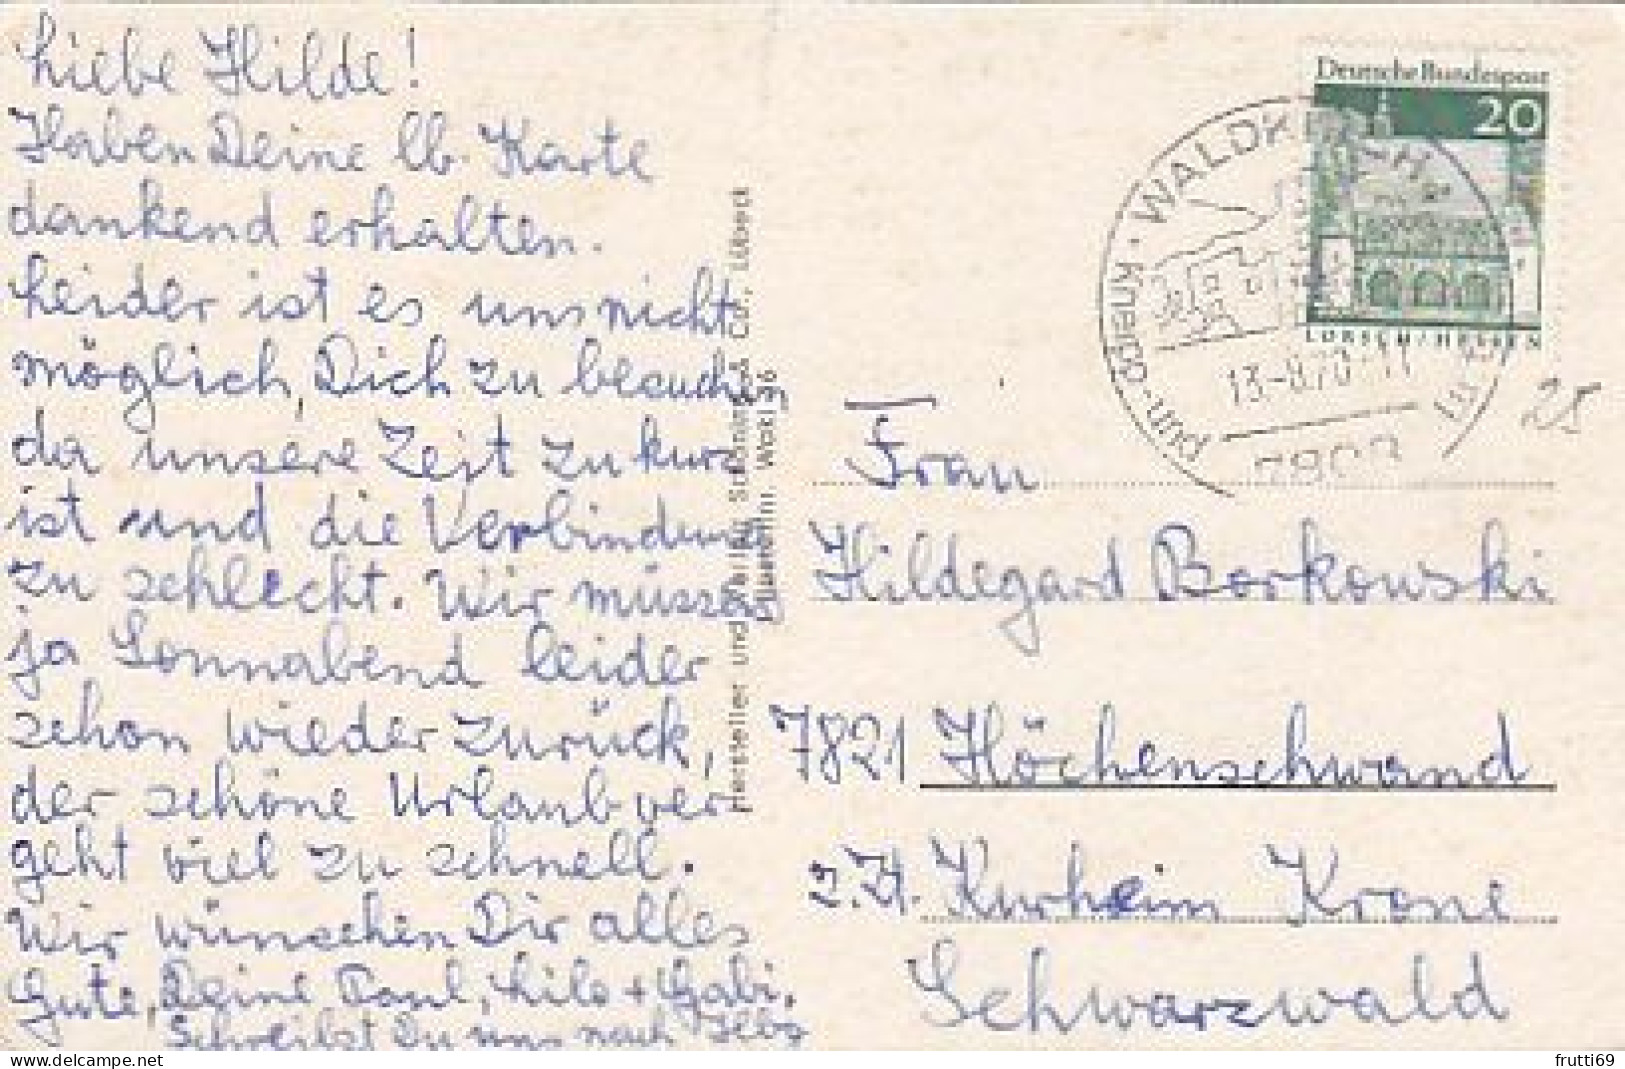 Liebe Hilde!
Haben Deine lb. Karte
dankend erhalten.
Leider ist es uns nicht
möglich, Dich zu besuchen,
da unsere Zeit zu kurz
ist und die Verbindung
zu schlecht. Wir müssen
ja Sonnabend leider
schon wieder zurück,
der schöne Urlaub ver-
geht viel zu schnell.
Wir wünschen Dir alles
Gute, Deine Paul, Lilo + Gabi.
Schreibst Du uns nach
Hersteller und Verlag Schöning & Co., Lübeck
Deutsche Bundespost
20
LORSCH/HESSEN
WALDK
Kneipp- und
13.-8.70-11
25
Frau
Hildegard Borkowski
7821 Höchenschwand
z.Zt. Kurheim Krone
Schwarzwald
frutti69
www.delcampe.net